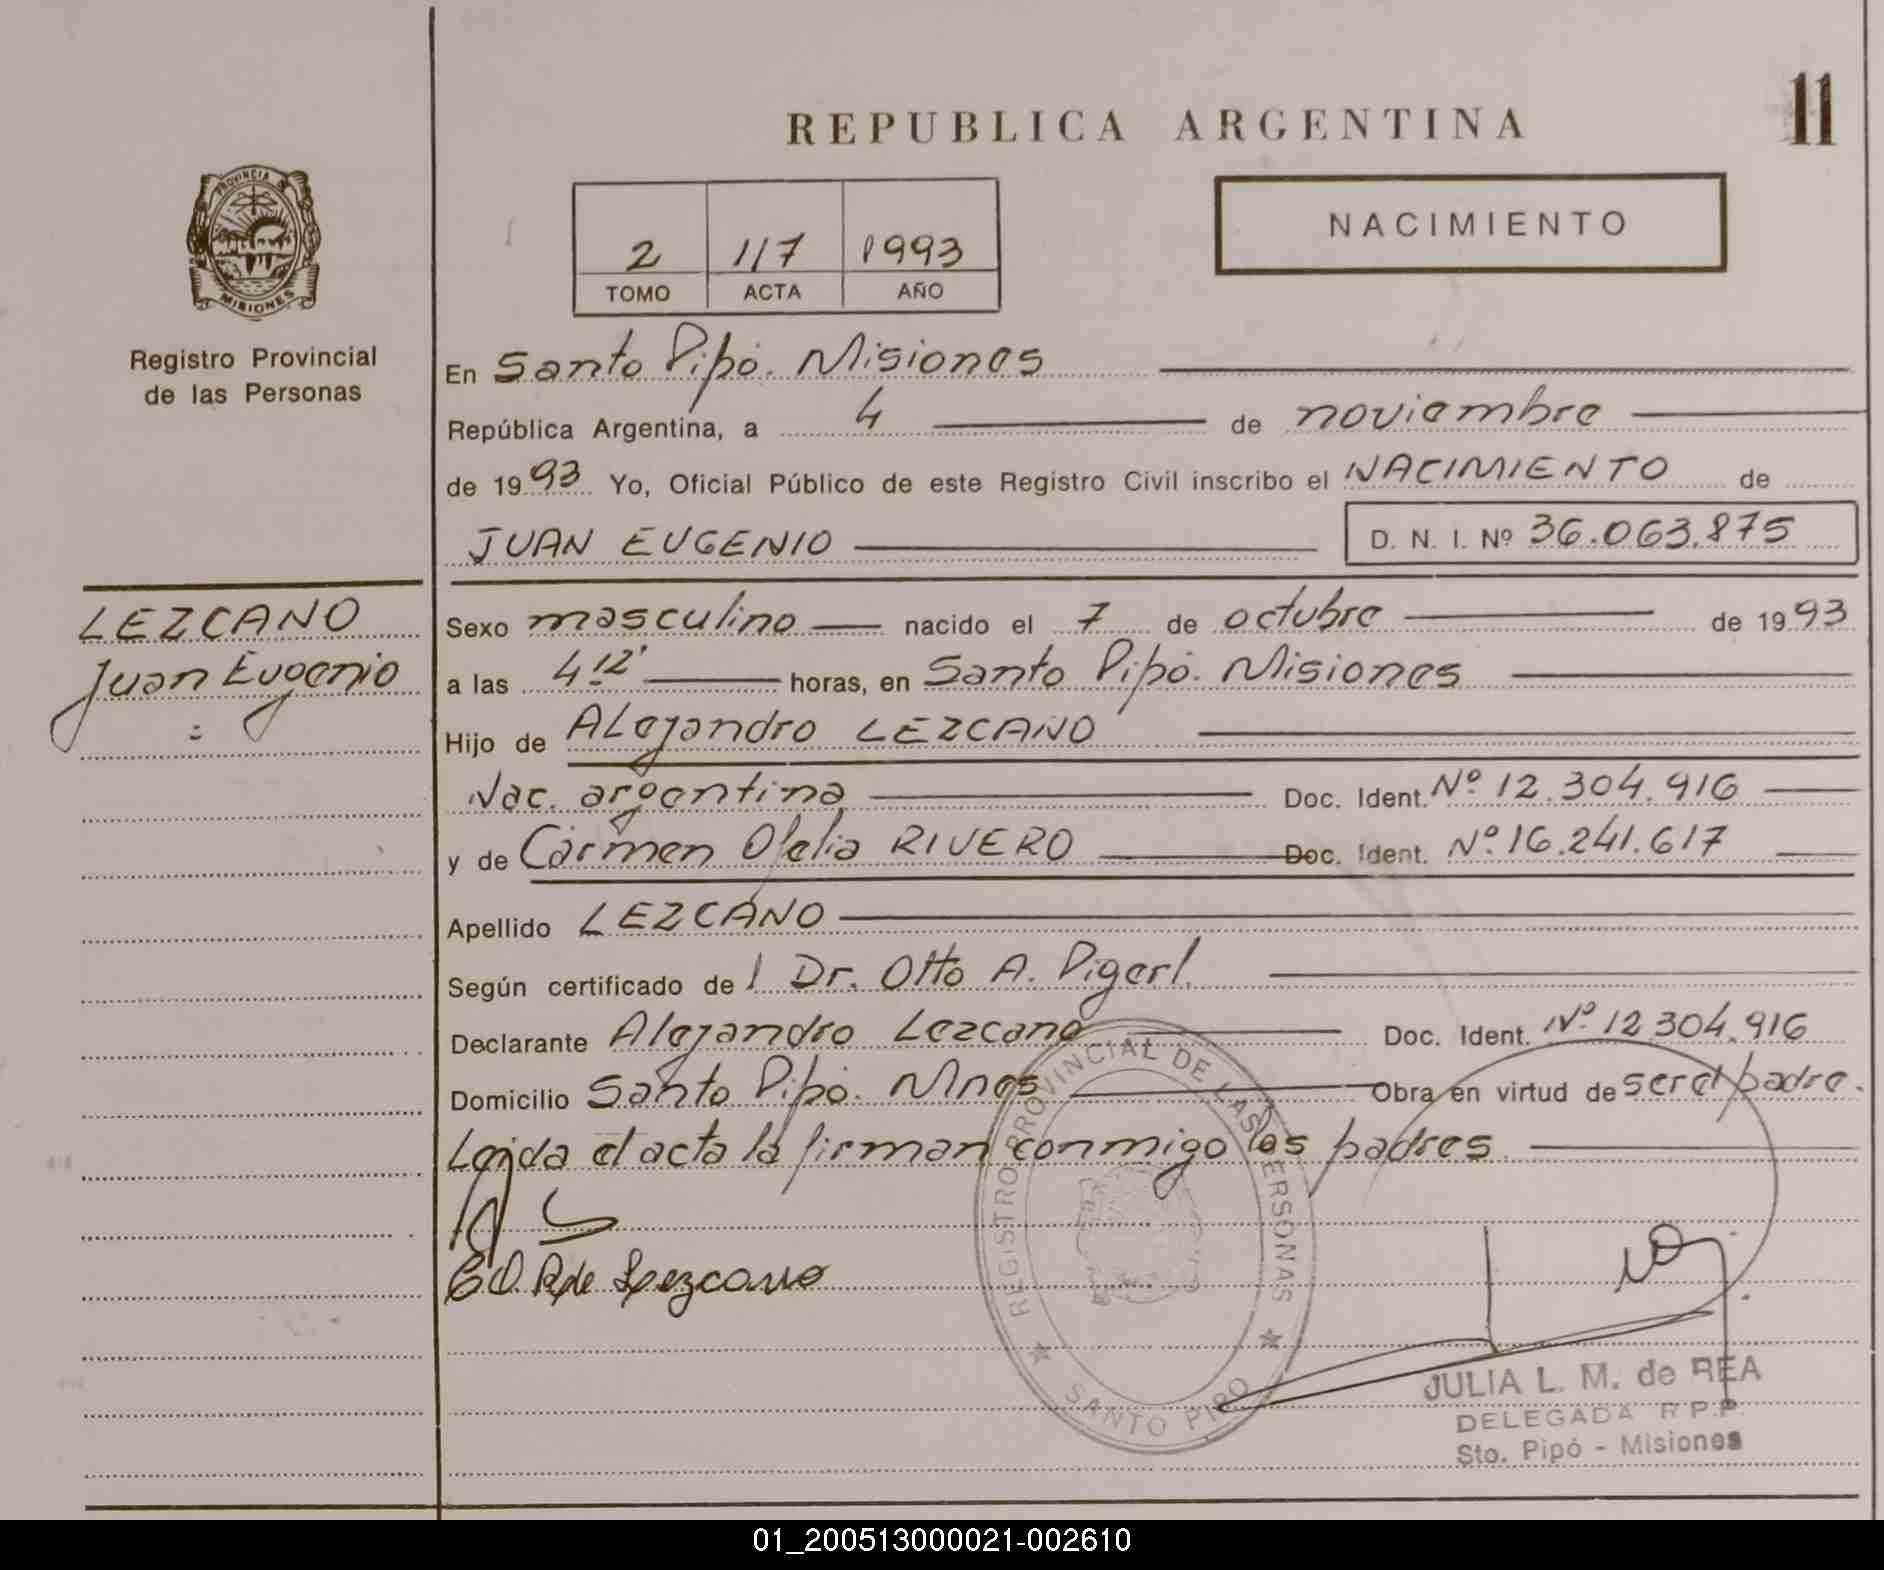 11
REPUBLICA ARGENTINA
PROVINCIA
MISIONES
2 117 1993
TOMO ACTA AÑO
NACIMIENTO
Registro Provincial
de las Personas
En Santo Pipó. Misiones
República Argentina, a 4 de noviembre
de 1993 Yo, Oficial Público de este Registro Civil inscribo el NACIMIENTO de
JUAN EUGENIO D. N. I. Nº 36.063.875
LEZCANO
Juan Eugenio
Sexo masculino nacido el 7 de octubre de 1993
a las 4.12' horas, en Santo Pipó. Misiones
Hijo de Alejandro LEZCANO
Nac. argentina Doc. Ident. Nº 12.304.916
y de Carmen Ofelia RIVERO Doc. Ident. Nº 16.241.617
Apellido LEZCANO
Según certificado de l Dr. Otto A. Pigerl.
Declarante Alejandro Lezcano Doc. Ident. Nº 12.304.916
Domicilio Santo Pipó. Mnes Obra en virtud de ser el padre.
Leida el acta la firman conmigo los padres
C.O.R de Lezcano
REGISTRO PROVINCIAL DE LAS PERSONAS
SANTO PIPO
JULIA L. M. de REA
DELEGADA R.P.P.
Sto. Pipó - Misiones
01_200513000021-002610